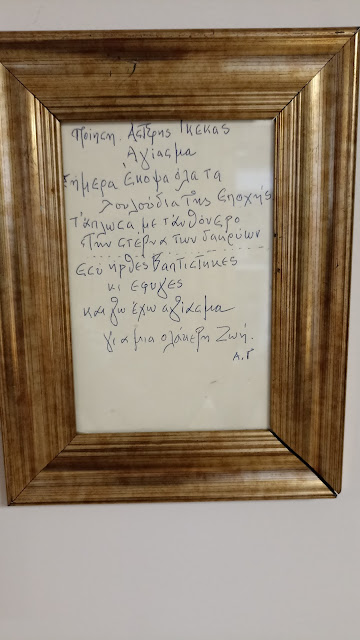 Ποίηση. Αστέρης Γκέκας
Αγίασμα
Σήμερα έκοψα όλα τα
Λουλούδια της Εποχής
Τάπλωσα με τ'ανθόνερο
στην στέρνα των δακρύων
Εσύ ήρθες Βαπτίστηκες
κι έφυγες
και γω έχω αγίασμα
για μια ολάκερη Ζωή.
Α.Γ